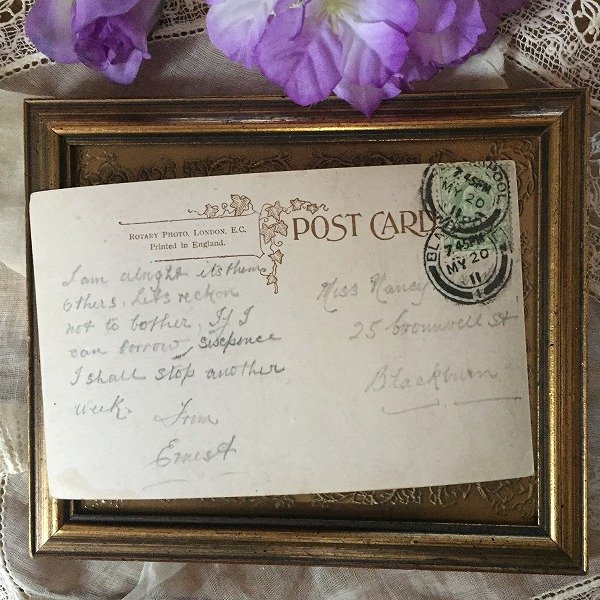 ROTARY PHOTO, LONDON, E.C.
Printed in England.
POST CARD
I am alright its them
others, Lets reckon
not to bother, If I
can borrow sixpence
I shall stop another
week.
From
Ernest
Miss Nancy
25 Cromwell St
Blackburn
7.45PM
MY 20
11
BLA
7.45PM
MY 20
11